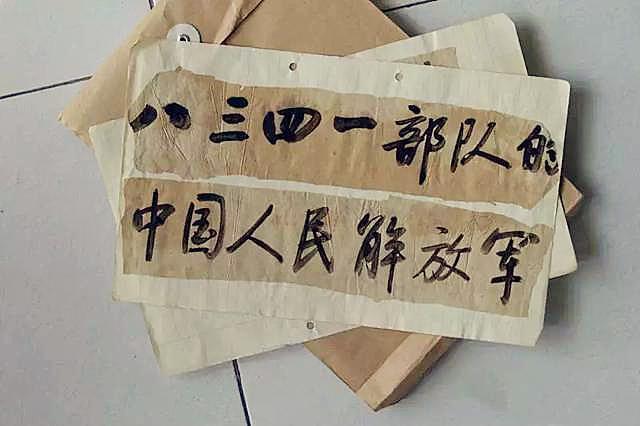 八三四一部队的
中国人民解放军